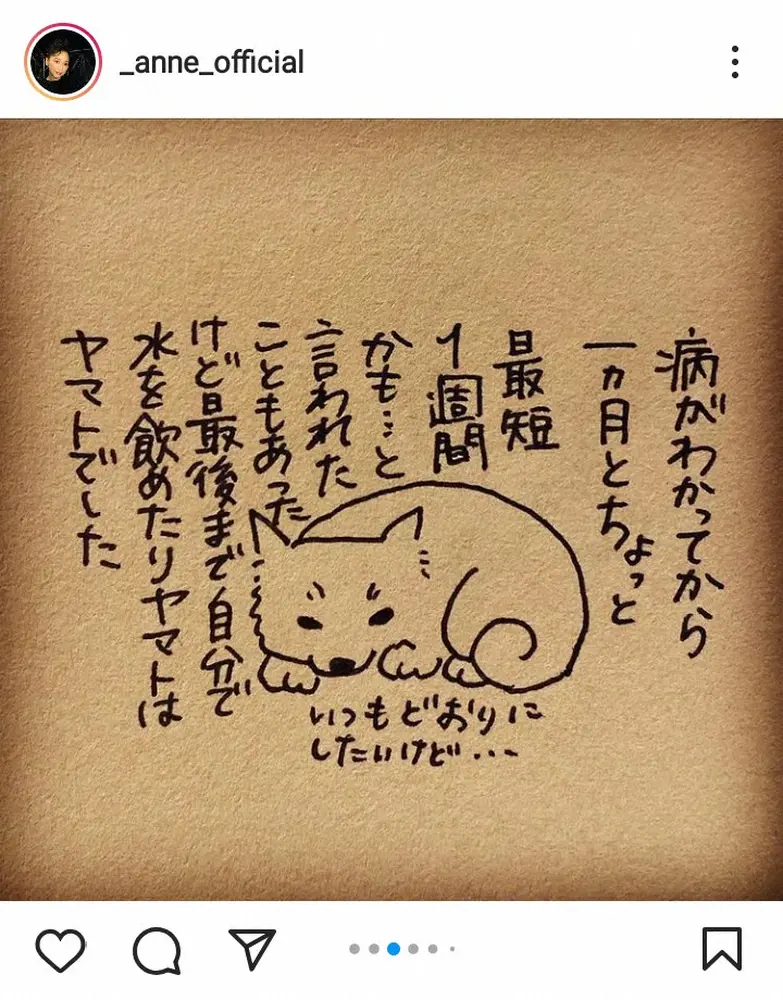 _anne_official
病がわかってから
一ヵ月とちょっと
最短
1週間
かも…と
言われた
こともあった
けど最後まで自分で
水を飲めたりヤマトは
ヤマトでした
いつもどおりに
したいけど…